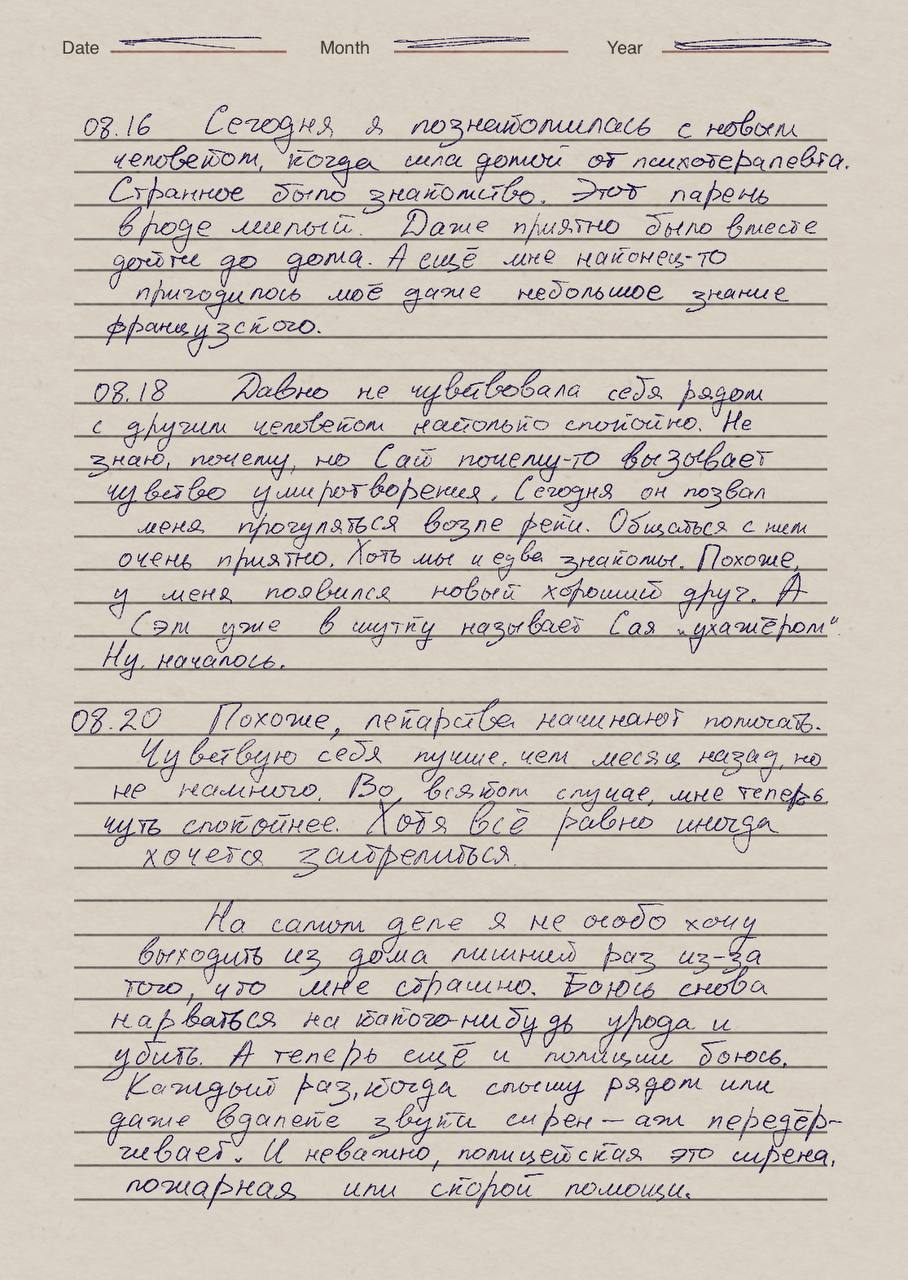 Date Month Year
08.16 Сегодня я познакомилась с новым
человеком, когда шла домой от психотерапевта.
Странное было знакомство. Этот парень
вроде милый. Даже приятно было вместе
дойти до дома. А ещё мне наконец-то
пригодилось моё даже небольшое знание
французского.
08.18 Давно не чувствовала себя рядом
с другим человеком настолько спокойно. Не
знаю, почему, но Сай почему-то вызывает
чувство умиротворения. Сегодня он позвал
меня прогуляться возле реки. Общаться с ним
очень приятно. Хоть мы и едва знакомы. Похоже,
у меня появился новый хороший друг. А
Сэм уже в шутку называет Сая „ухажёром“.
Ну, началось.
08.20 Похоже, лекарства начинают помогать.
Чувствую себя лучше, чем месяц назад, но
не намного. Во, всяком случае, мне теперь
чуть спокойнее. Хотя всё равно иногда
хочется застрелиться.
На самом деле я не особо хочу
выходить из дома лишний раз из-за
того, что мне страшно. Боюсь снова
нарваться на какого-нибудь урода и
убить. А теперь ещё и полиции боюсь.
Каждый раз, когда слышу рядом или
даже вдалеке звуки сирен – аж передёр-
гивает. И неважно, полицейская это сирена,
пожарная или скорой помощи.